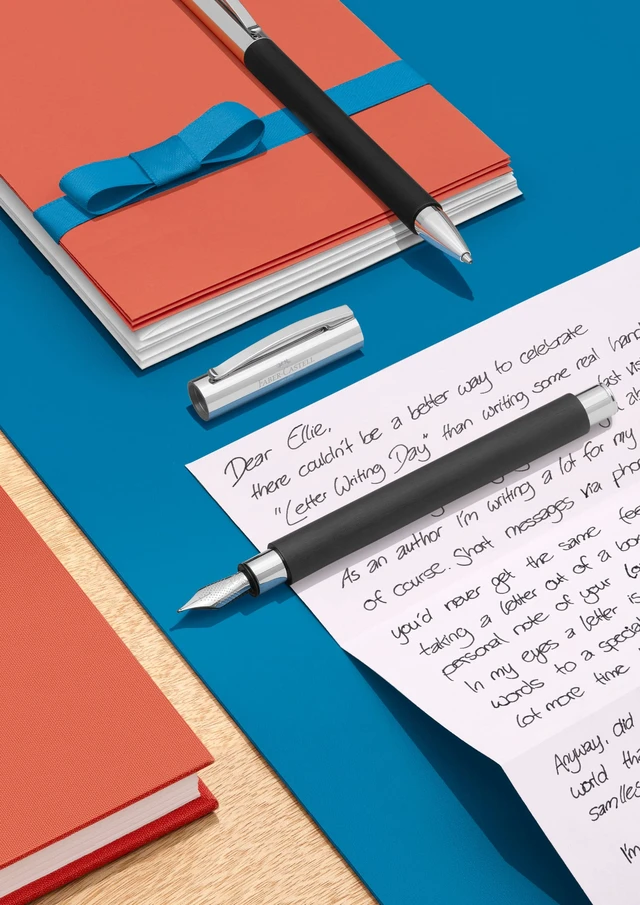 FABER-CASTELL
Dear Ellie,
there couldn't be a better way to celebrate
"Letter Writing Day" than writing some real
last
As an author I'm writing a lot for my
of course. Short messages via
you'd never get the same
taking a letter out of a
personal note of your
In my eyes a letter is
words to a special
lot more time
Anyway, did
world
I'm